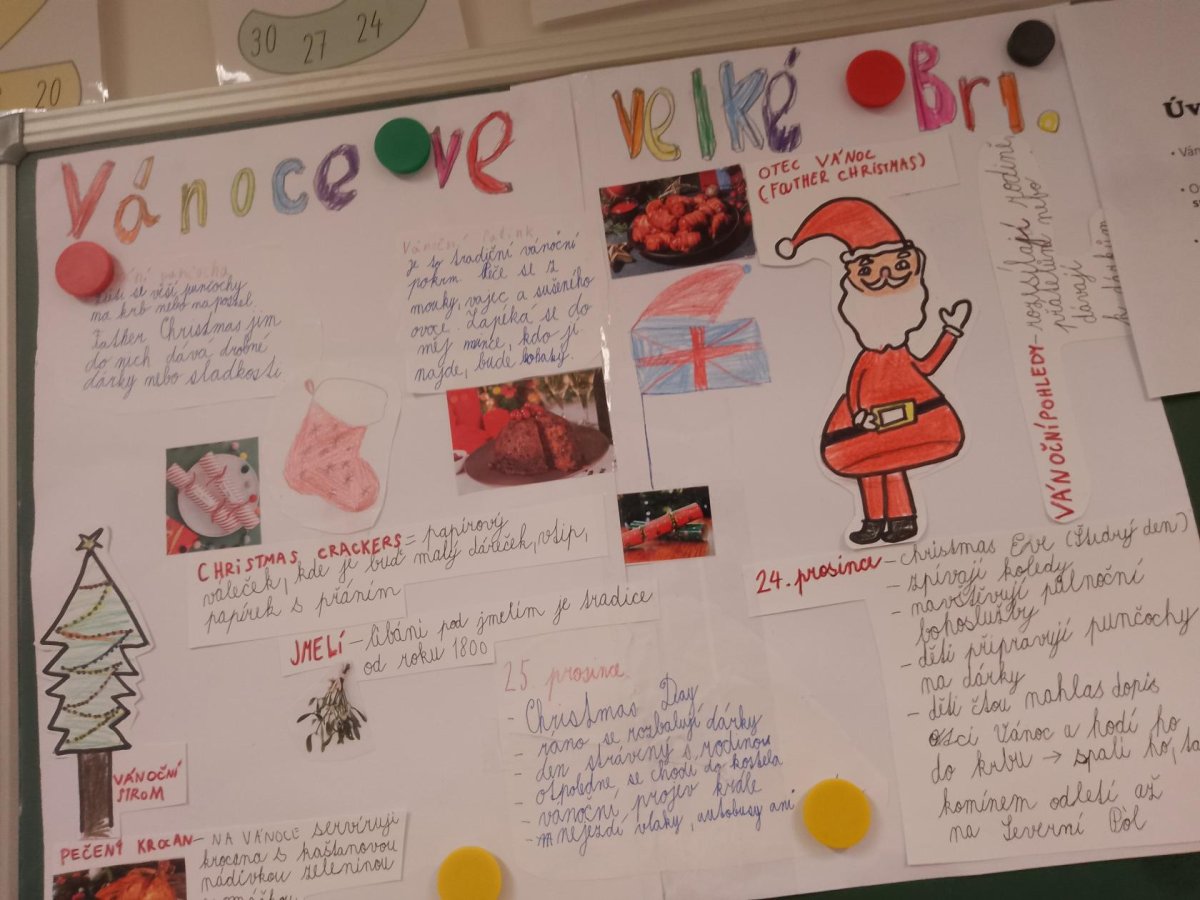 30 27 24
20
Vánoce ve velké Bri.
Úv
• Ván
• O
Vánoční punčocha
Děti si věší punčochy
na krb nebo na postel
Father Christmas jim
do nich dává drobné
dárky nebo sladkosti
Vánoční
je to tradiční vánoční
pokrm. Peče se z
mouky, vajec a sušeného
ovoce. Zapéka se do
něj mince, kdo ji
najde, bude bohatý.
OTEC VÁNOC
(FATHER CHRISTMAS)
VÁNOČNÍ POHLEDY - rozesílají rodině
přátelům nebo
dávají
k dárkům
CHRISTMAS CRACKERS = papírový
váleček, kde je buď malý dáreček, vtip,
papírek s přáním
JMELÍ - líbání pod jmelím je tradice
od roku 1800
24. prosince - Christmas Eve (Štědrý den)
- zpívají koledy
- navštěvují půlnoční
bohoslužby
- děti připravují punčochy
na dárky
- děti čtou nahlas dopis
otci Vánoc a hodí ho
do krbu → spálí ho, ta
komínem odletí až
na Severní Pól
25. prosince
- Christmas Day
- ráno se rozbalují dárky
- den strávený s rodinou
- otpoledne se chodí do kostela
- vánoční projev krále
- nejezdí vlaky, autobusy ani
VÁNOČNÍ
STROM
PEČENÝ KROCAN - NA VÁNOCE servírují
krocana s kaštanovou
nádivkou zeleninou